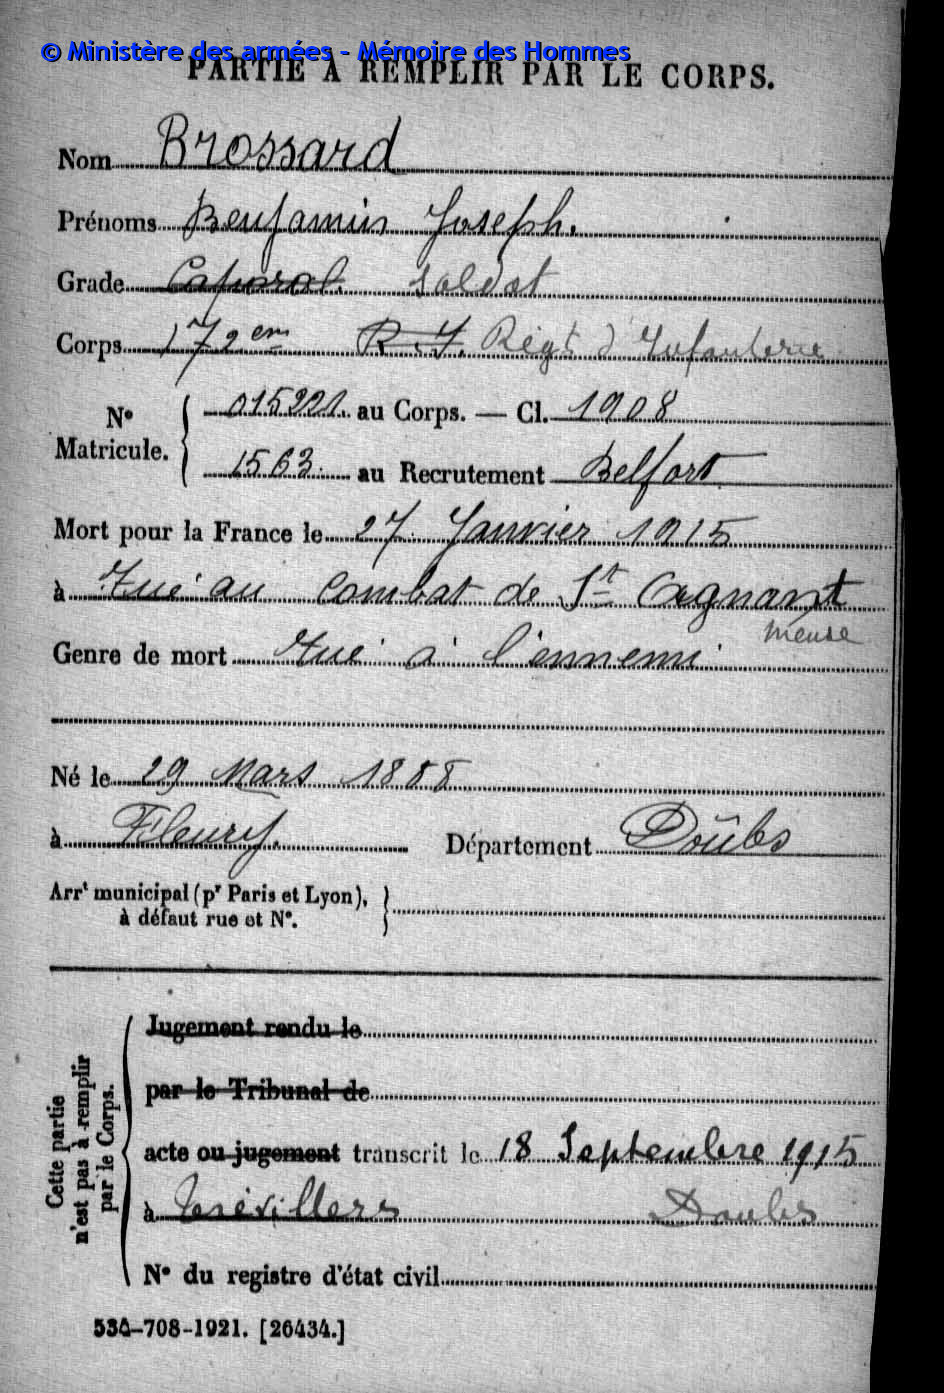 © Ministère des armées - Mémoire des Hommes
PARTIE À REMPLIR PAR LE CORPS.
Nom Brossard
Prénoms Benjamin Joseph.
Grade Caporal. soldat
Corps 172em R.I. Régt d'Infanterie
No Matricule. { 015221. au Corps. — Cl. 1908
1563. au Recrutement Belfort
Mort pour la France le 27 Janvier 1915
à Tué au combat de St Agnant
Meuse
Genre de mort Tué à l'ennemi
Né le 29 Mars 1888
à Fleury. Département Doûbs
Arrt municipal (pr Paris et Lyon),
à défaut rue et No.
Cette partie n'est pas à remplir par le Corps.
Jugement rendu le
par le Tribunal de
acte ou jugement transcrit le 18 Septembre 1915
à Trévillers Doubs
No du registre d'état civil
534-708-1921. [26434.]